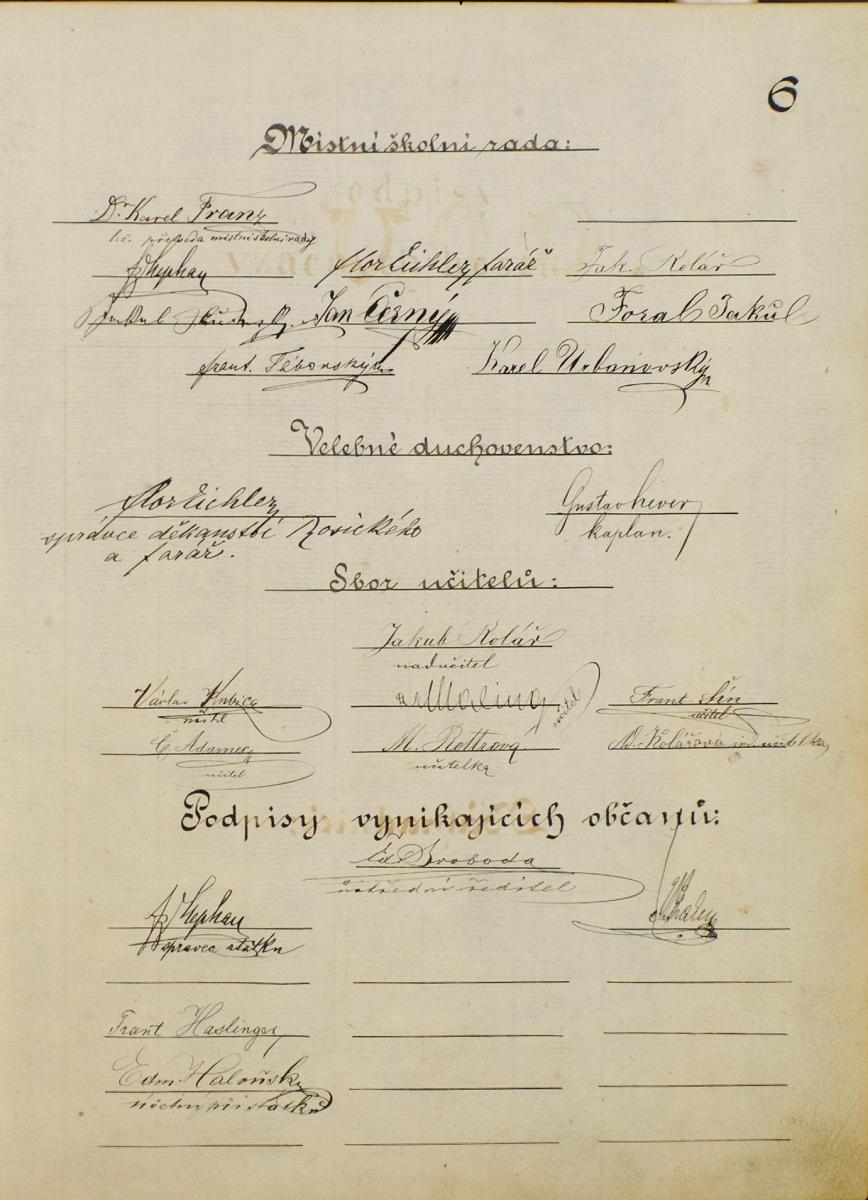 6
Místní školní rada:
Dr Karel Franz
předseda místní školní rady
Flor Eichler, farář Jak. Kolář
Jan Černý Foral Jakub
frant. Táborský Karel Urbanovský
Velebné duchovenstvo:
Flor Eichler Gustav
správce děkanství Rosického kaplan.
a farář.
Sbor učitelů:
Jakub Kolář
nadučitel
Václav Kubica Frant. Šín
učitel učitel učitel
C. Adamec M. Rottrová Kolářová ind. učitelka
učitel učitelka
Podpisy vynikajících občanů:
Ed. Svoboda
ústřední ředitel
správce statku
Frant Haslinger
Edm. Halouský
účetní při statku